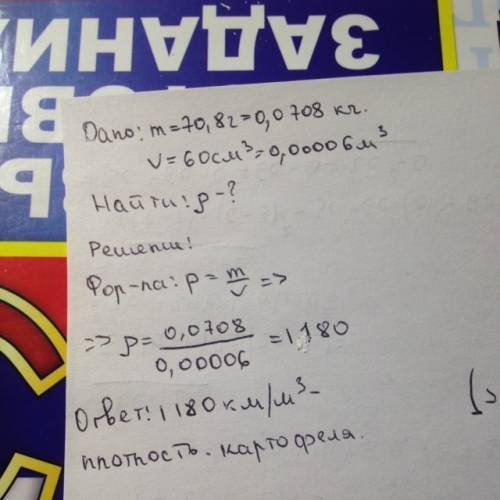 ЗАДАНИ
Дано: m=70,8г=0,0708 кг.
V=60см³=0,00006м³
Найти: ρ-?
Решение!
Фор-ла: ρ = m/V =>
=> ρ= 0,0708/0,00006 =1180
Ответ! 1180 км/м³-
плотность. картофеля.